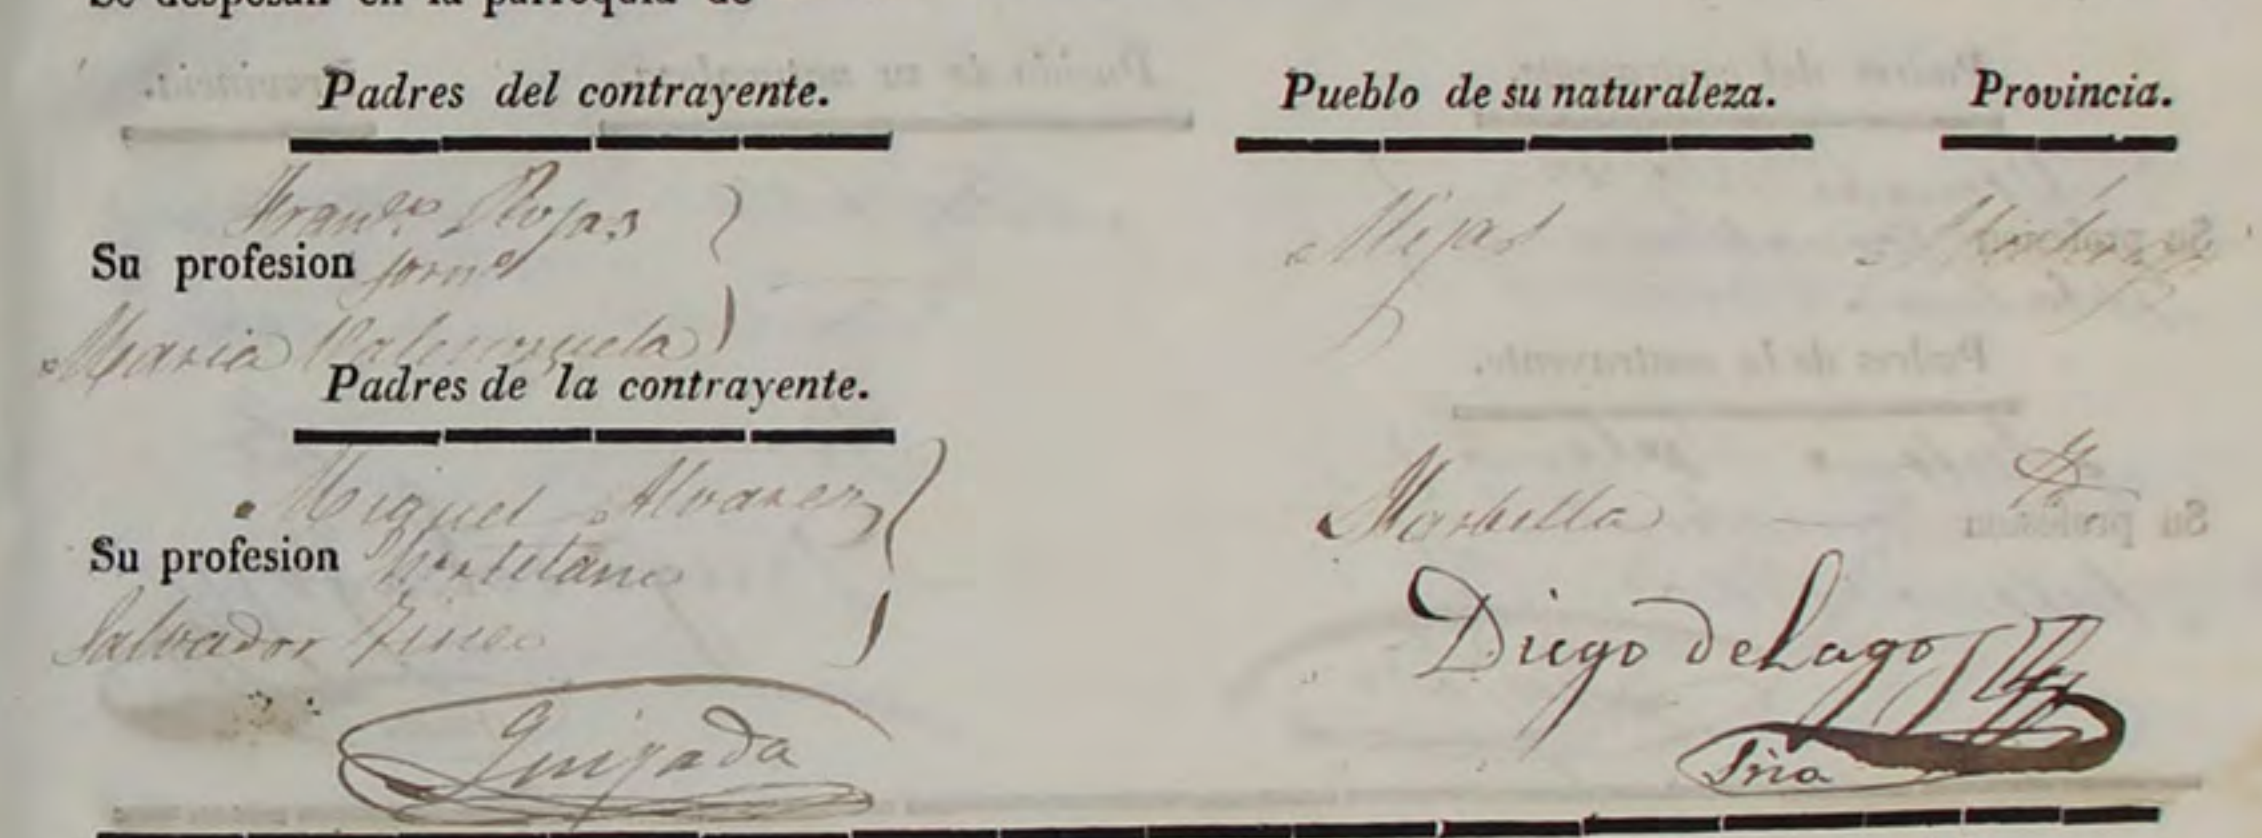 Se desposan en la parroquia de
Padres del contrayente. Pueblo de su naturaleza. Provincia.
Franco. Rojas Mijas
Su profesion jornº
Maria Valenzuela
Padres de la contrayente.
Miguel Alvarez Marbella
Su profesion Hortelano
Salvador Diego de Lago
Quijada Sria